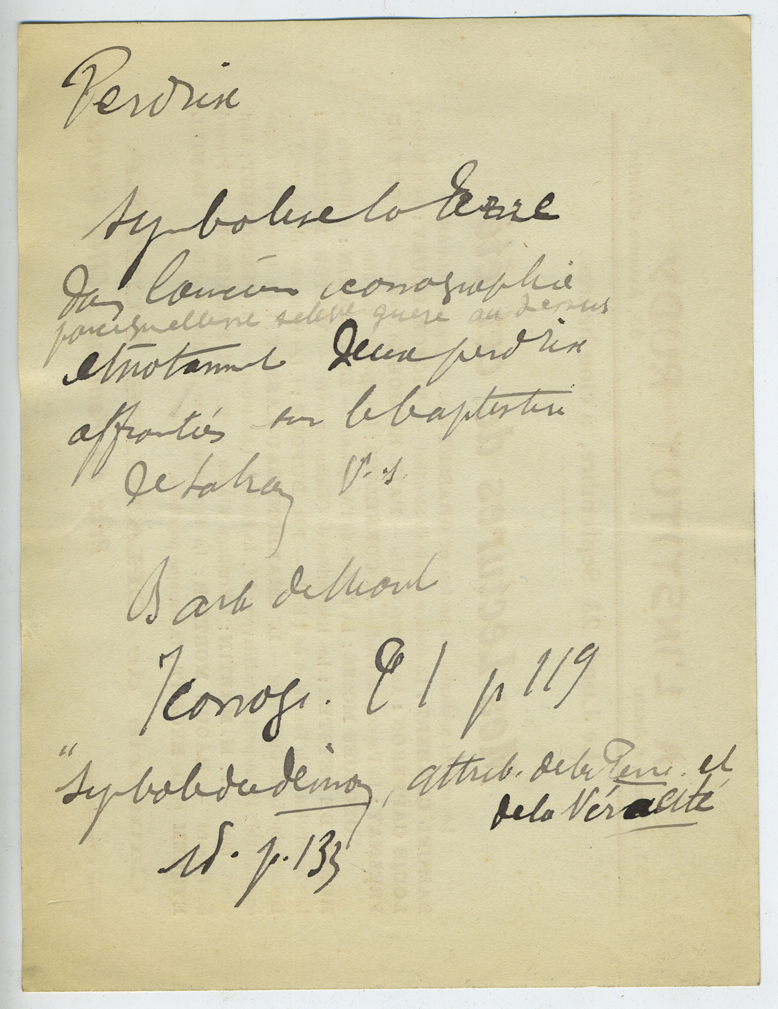 Perdrix
symbolise la Terre
dans l'ancienne iconographie
parcequ'elle ne s'élève guère au dessus
et notamment deux perdrix
affrontées sur le baptistère
de V. s.
Barb de Mont
Iconogr. T 1 p 119
"Symbole du démon, attrib. de la Terre et
de la Véracité
id. p. 133